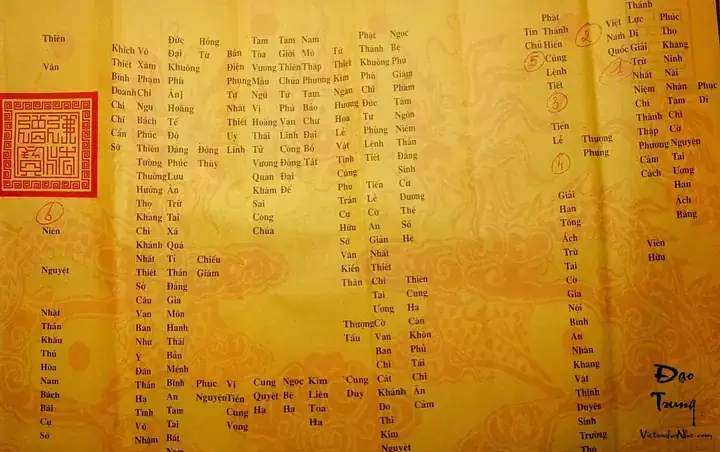 Phục Di
Phúc Thọ Khang Ninh Nãi Nhân Tâm Chi Cờ Nguyện Tai Ương Hạn Ách Bằng
Viên Hữu
Thánh Lực Di Giải Trừ Nhất Niệm Chí Thành Thập Phương Cảm Cách
Việt Nam Quốc
2
1
Thượng Phụng
Giải Hạn Tống Ách Trừ Tai Cờ Gia Nội Bình An Nhân Khang Vật Thịnh Duyên Sinh Trường Thọ
Phật Thánh Hiến Cúng Lệnh Tiết
3
Tiến Lễ
4
Tín Chủ
5
Ngọc Bệ Phủ Giám Phàm Tâm Ngôn Niệm Thần Đẳng Sinh Cư Dương Thế Số Hệ
Thiên Cung Hạ Càn Khôn Phủ Tái Chi Ân Cảm
Phật Thánh Khuông Phù Chí Đức Tư Phùng Lệnh Tiết
Tiến Lễ Cờ An Gián Thiết Chi Tai Ương Cờ Vạn Ban Chi Cát Khánh Do Thi Kim Nguyệt
Từ Thiết Kim Ngân Hương Hoa Lễ Vật Tịnh Cúng Phu Trần Cụ Hữu Sớ Văn Kiến Thân
Thượng Tấu
Cung Duy
Nam Mô Thập Phương Tam Bảo Chư Đại Bồ Tát
Kim Liên Tọa Hạ
Tam Giới Thiên Chúa Tứ Phủ Vạn Linh Công Đồng Đại Đế
Ngọc Bệ Hạ
Tam Tòa Vương Mẫu Ngũ Vị Hoàng Thái Tử Vương Quan Khâm Sai Công Chúa
Cung Quyết Hạ
Bản Điện Phụng Tự Nhất Thiết Uy Linh
Vị Tiền Cung Vọng
Hồng Từ
Đồng Thùy
Chiếu Giám
Phục Nguyện
Đức Đại Khuông Phù Ân Hoằng Tế Độ Đẳng Phúc Lưu Ân Trừ Tai Xá Quá Tỉ Thần Đẳng Gia Môn Hanh Thái Bản Mệnh Bình An Tam Tai Bát
Vô Xâm Phạm Chi Ngu Bách Phúc Thiên Tường Thường Hưởng Thọ Khang Chi Khánh Nhất Thiết Sở Cầu Vạn Ban Như Ý Đán Thần Hạ Tình Vô Nhậm
Khích Thiết Bình Doanh Chi Chí Cẩn Sớ
Thiên Vận
6
Niên
Nguyệt
Nhật Thần Khấu Thủ Hòa Nam Bách Bái Cụ Sớ
Đạo
Trung